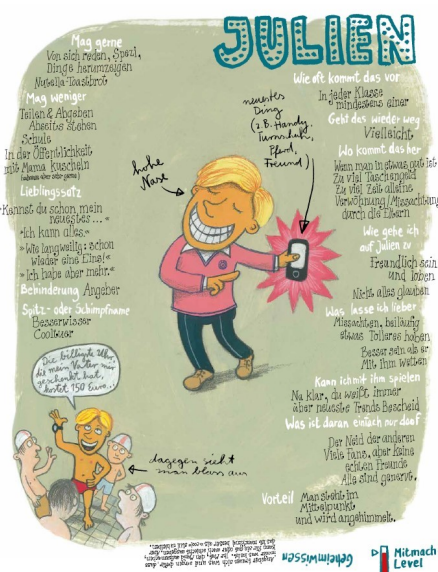 JULIEN
Mag gerne
Von sich reden, Spezl,
Dinge herumzeigen
Nutella-Toastbrot
Mag weniger
Teilen & Abgeben
Abseits stehen
Schule
In der Öffentlichkeit
mit Mama kuscheln
Lieblingssatz
»Kennst du schon mein
neuestes ...«
»Ich kann alles.«
»Wie langweilig: schon
wieder eine Eins!«
»Ich habe aber mehr.«
Behinderung Angeber
Spitz- oder Schimpfname
Besserwisser
Cooltuer
hohe
Nase
neuestes
Ding
(z.B. Handy,
Turnschuh,
Pferd,
Freund)
Wie oft kommt das vor
In jeder Klasse
mindestens einer
Geht das wieder weg
Vielleicht
Wo kommt das her
Wenn man in etwas gut ist
Zu viel Taschengeld
Zu viel Zeit alleine
Verwöhnung/Missachtung
durch die Eltern
Wie gehe ich
auf Julien zu
Freundlich sein
und loben
Nicht alles glauben
Was lasse ich lieber
Missachten, beiläufig
etwas Tolleres haben
Besser sein als er
Mit ihm wetten
Kann ich mit ihm spielen
Na klar, du weißt immer
über neueste Trends Bescheid
Was ist daran einfach nur doof
Der Neid der anderen
Viele Fans, aber keine
echten Freunde
Alle sind genervt.
Vorteil Man steht im
Mittelpunkt
und wird angehimmelt.
Die billigste Uhr,
die mein Vater mir
geschenkt hat,
kostet 150 Euro...
dagegen sieht
man blass aus
Geheimwissen
Mitmach
Level